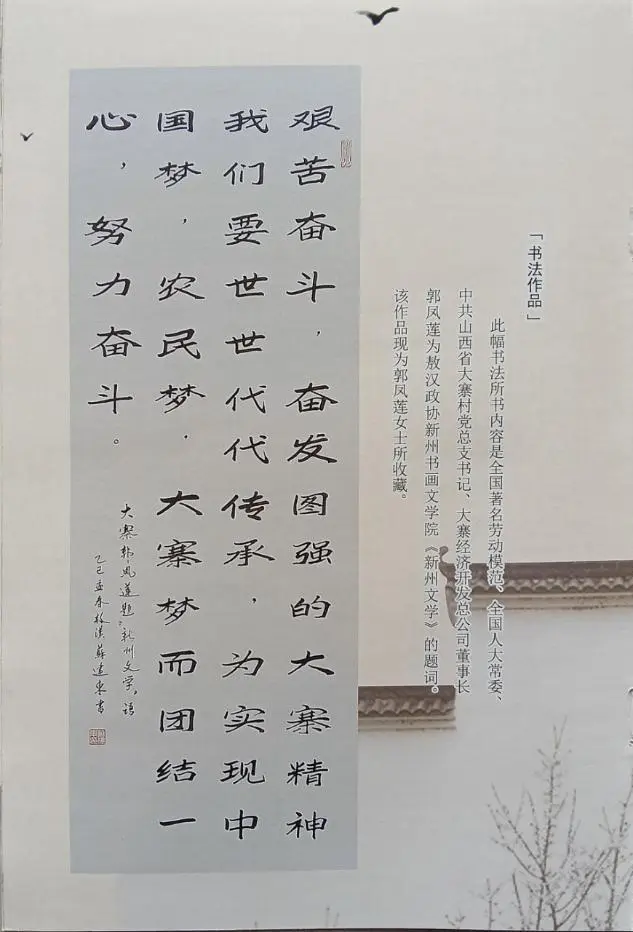 「书法作品」
此幅书法所书内容是全国著名劳动模范、全国人大常委、
中共山西省大寨村党总支书记、大寨经济开发总公司董事长
郭凤莲为敖汉政协新州书画文学院《新州文学》的题词。
该作品现为郭凤莲女士所收藏。
艰苦奋斗，奋发图强的大寨精神
我们要世世代代传承，为实现中
国梦，农民梦，大寨梦而团结一
心，努力奋斗。
大寨郭凤莲题“新州文学”语
乙巳孟春敖漢蘇建東書